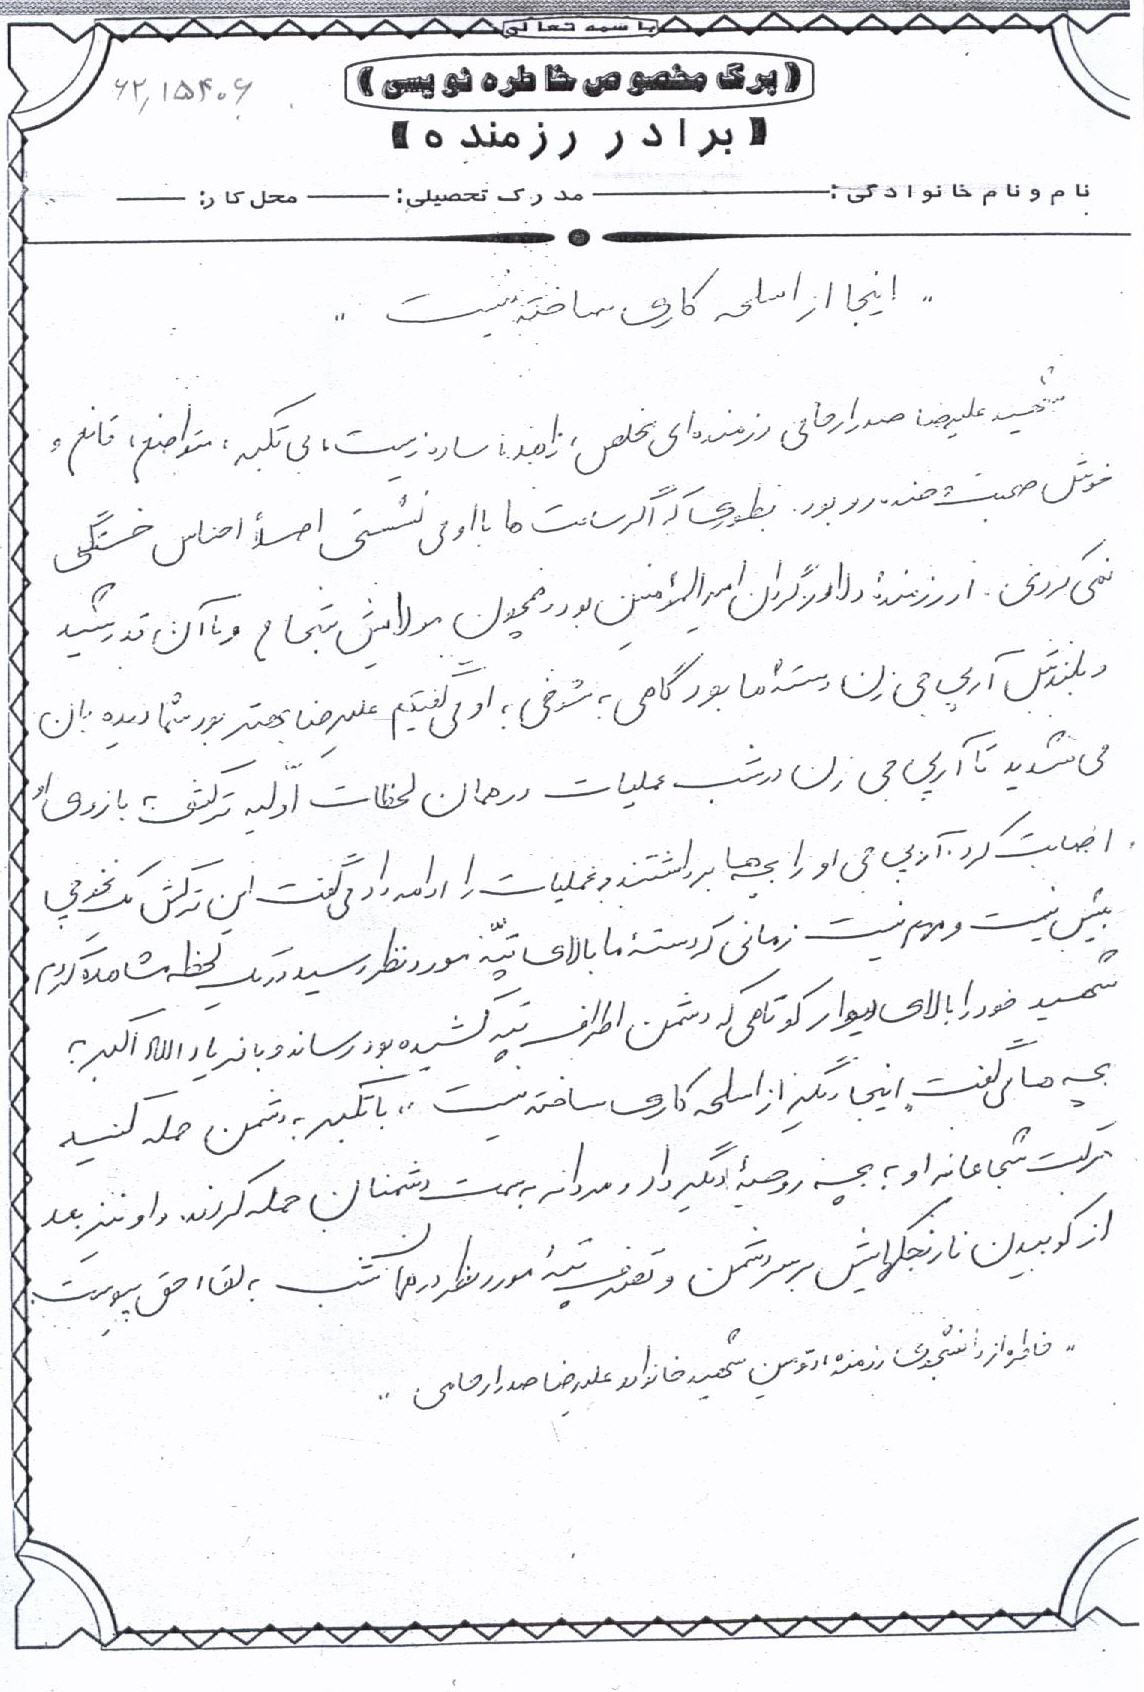 باسمه تعالی
۶۲٫۱۵۴۰۶
(برگ مخصوص خاطره نویسی)
«برادر رزمنده»
نام و نام خانوادگی: مدرک تحصیلی: محل کار:
" اینجا از اسلحه کاری ساخته نیست "
شهید علیرضا صدرارحامی رزمنده‌ای مخلص، زاهد، ساده زیست، بی تکبر، متواضع، قانع و
خوش صحبت و خنده رو بود. بطوری که اگر ساعت ها با او می نشستی اصلاً احساس خستگی
نمی کردی. از رزمندهٔ دلاور گردان امیرالمؤمنین بود و همچون مولایش شجاع و با آن قد رشید
و بلندش آرپی جی زن دستهٔ ما بود گاهی به شوخی به او می گفتیم علیرضا بهتر بود شما دیده بان
می شدید تا آرپی جی زن در شب عملیات در همان لحظات اوّلیه ترکش به بازوی او
اصابت کرد. آرپی جی او را بچه‌ها برداشتند و عملیات را ادامه داد می گفت این ترکش یک نخودچی
بیش نیست و مهم نیست زمانی که دستهٔ ما بالای تپّه مورد نظر رسید در یک لحظه مشاهده کردم
شهید خود را بالای دیوار کوتاهی که دشمن اطراف تپه کشیده بود رساند و با فریاد الله اکبر به
بچه ها می گفت اینجا دیگر از اسلحه کاری ساخته نیست "، با تکبیر به دشمن حمله کنید
حرکت شجاعانه او به بچه روحیهٔ دیگر داد و مردانه به سمت دشمنان حمله کردند. و او نیز بعد
از کوبیدن نارنجکهایش بر سر دشمن و تصرف تپهٔ مورد نظر در همان شب به لقاء حق پیوست.
" خاطره از دانشجوی رزمنده شهید خانواده علیرضا صدرارحامی "